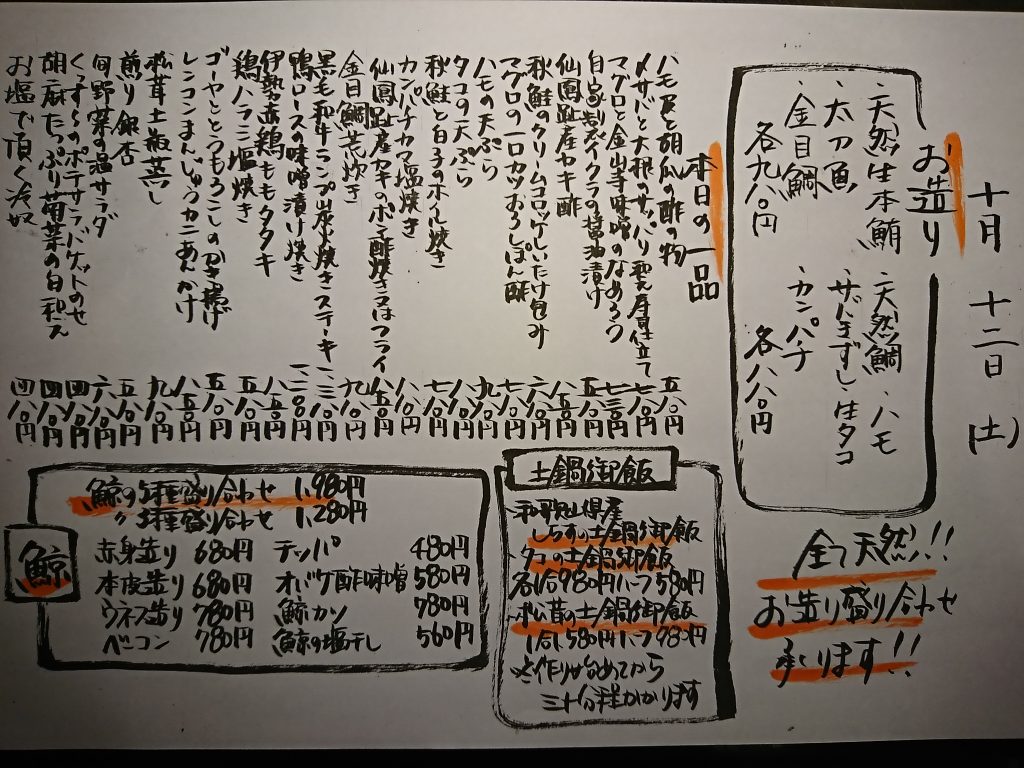 十月 十二日(土)
お造り
・天然生本鮪 ・天然鯛 ・ハモ
・太刀魚 ・サバきずし・生タコ
・金目鯛 ・カンパチ
各九八〇円 各八八〇円
全て天然!!
お造り盛り合わせ
承ります!!
本日の一品
ハモ皮と胡瓜の酢の物 五八〇円
〆サバと大根のサッパリ雲丹寿司仕立て 七八〇円
マグロと金山寺味噌のなめろう 七三〇円
自家製イクラの醤油漬け 五八〇円
仙鳳趾産カキ酢 八五〇円
秋鮭のクリームコロッケしいたけ包み 六八〇円
マグロの一口カツおろしぽん酢 七八〇円
ハモの天ぷら 九八〇円
タコの天ぷら 八八〇円
秋鮭と白子のホイル焼き 七八〇円
カンパチカマ塩焼き 八八〇円
仙鳳趾産カキのポン酢焼き又はフライ 八五〇円
金目鯛荒炊き 九八〇円
黒毛和牛ランプ炭火焼きステーキ
鴨ロースの味噌漬け焼き
伊勢赤鶏ももタタキ 八五〇円
鶏ハラミ塩焼き 五八〇円
ゴーヤととうもろこしのかき揚げ 五八〇円
レンコンまんじゅうカニあんかけ 八五〇円
松茸土瓶蒸し 九八〇円
煎り銀杏 五八〇円
旬野菜の温サラダ 六八〇円
くずらのポテサラバケットのせ 四八〇円
胡麻たっぷり菊菜の白和え 四八〇円
お塩で頂く冷奴 四八〇円
土鍋御飯
和歌山県産
しらすの土鍋御飯
タコの土鍋御飯
各1合980円ハーフ580円
松茸の土鍋御飯
1合1,580円ハーフ980円
※作り始めてから
三十分程かかります
鯨
鯨の5種盛り合わせ 1,980円
〃3種盛り合わせ 1,280円
赤身造り 680円 テッパ 480円
本皮造り 680円 オバケ酢味噌 580円
ウネス造り 780円 鯨カツ 780円
ベーコン 780円 鯨の塩干し 560円